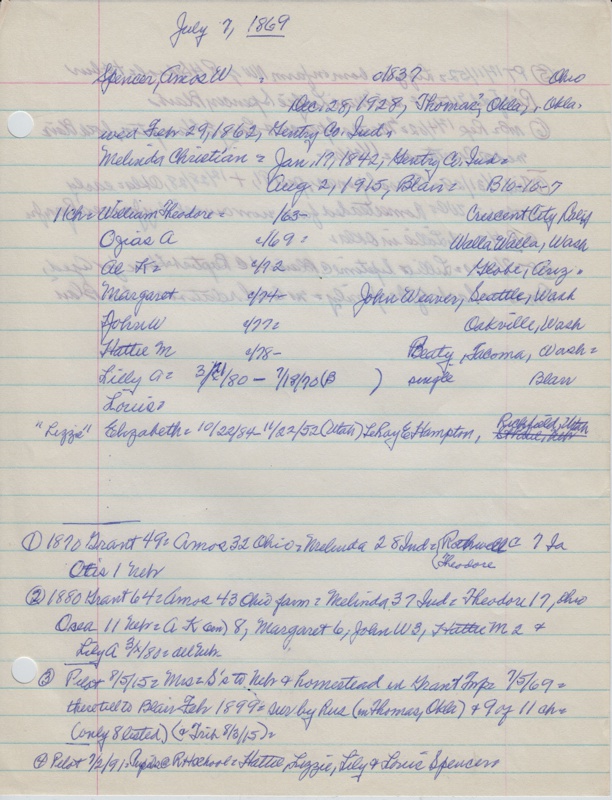 July 7, 1869
Spencer, Amos W. c1837 Ohio
Dec. 28, 1928, Thomas, Okla., Okla.
wed Feb 29, 1862, Gentry Co. Ind.
Melinda Christian = Jan. 17, 1842, Gentry Co. Ind =
Aug. 2, 1915, Blair = B10-10-7
11 ch = William Theodore = /63- Crescent City, Calif
Ozias A c/69 = Walla Walla, Wash
Al K = c/72 Globe, Ariz =
Margaret c/74- John Weaver, Seattle, Wash
John W c/77 = Oakville, Wash
Hattie M c/78- Beaty, Tacoma, Wash =
Lilly A = /80 - 7/18/70 (B ) single Blair
Louis =
"Lizzie" Elizabeth = 10/22/84 - 11/22/52 (Utah) LeRoy E Hampton, Richfield, Utah
① 1870 Grant 49 = Amos 32 Ohio = Melinda 28 Ind = Rothwell C 7 Ia
Theodore
Otis 1 Nebr
② 1880 Grant 64 = Amos 43 Ohio farm = Melinda 37 Ind = Theodore 17, Ohio
Osea 11 Nebr = A K (son) 8, Margaret 6, John W 3, Hattie M 2 &
Lily A 3/12/80 = all Nebr
③ Pilot 7/5/15 = Mrs = S's to Nebr & homestead in Grant Twp = 7/5/69 =
there till to Blair Feb 1899 = surv by Rus (in Thomas, Okla) & 9 of 11 ch =
(only 8 listed) (& Trib 8/3/15) =
④ Pilot 7/2/91 = Pupils @ R H school = Hattie, Lizzie, Lily & Louis Spencer